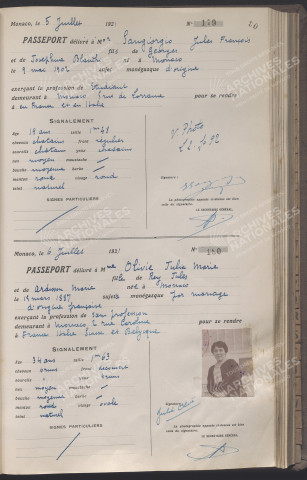 26
Monaco, le 5 Juillet 192
N° 179
PASSEPORT délivré à Mr Sangiorgio Jules François
fils de Georges
et de Joséphine né à Monaco
le 9 mai 1902 sujet monégasque d'origine
exerçant la profession de Etudiant
demeurant à Monaco rue de Lorraine pour se rendre
à en France et en Italie
SIGNALEMENT
âge 19 ans taille 1m48
cheveux chatain front régulier
sourcils chatain yeux chatain
nez moyen moustache
bouche moyenne barbe
menton rond visage rond
teint naturel
SIGNES PARTICULIERS
V. Photo
Signature :
La photographie apposée ci-dessus est bien
celle du signataire.
LE SECRÉTAIRE GÉNÉRAL,
Monaco, le 6 Juillet 192
N° 180
PASSEPORT délivré à Mme Olivié Julie Marie
fille de Rey Jules
et de Marie née à Monaco
le 19 mars 1887 sujette monégasque par mariage
d'origine française
exerçant la profession de sans profession
demeurant à Monaco rue Caroline pour se rendre
à France Italie Suisse et Belgique
SIGNALEMENT
âge 34 ans taille 1m63
cheveux bruns front découvert
sourcils yeux bruns
nez moyen moustache
bouche moyenne barbe
menton rond visage ovale
teint naturel
SIGNES PARTICULIERS
Signature :
La photographie apposée ci-dessus est bien
celle du signataire.
LE SECRÉTAIRE GÉNÉRAL,
ARCHIVES
NATIONALES